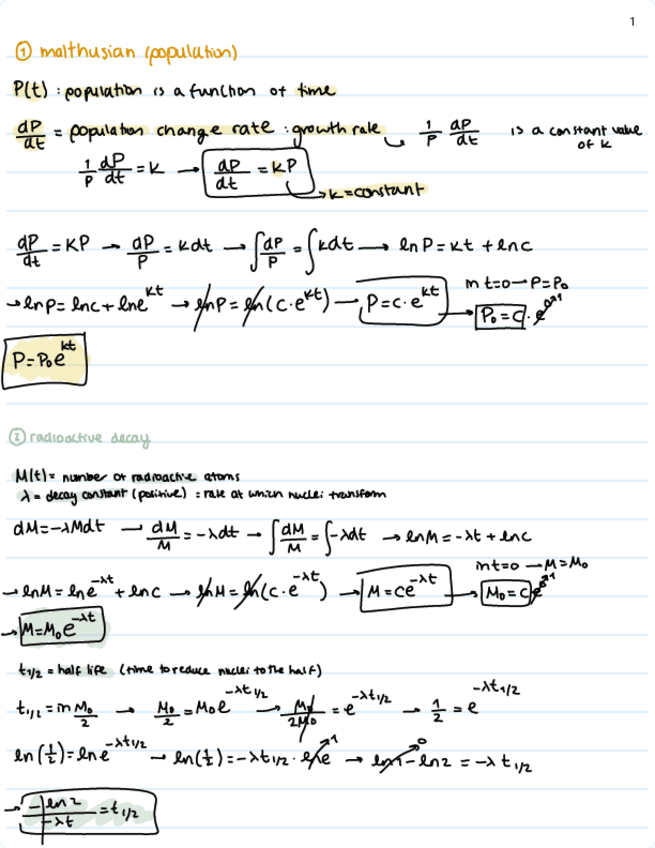 1
① malthusian (population)
P(t) : population is a function of time
dP/dt = population change rate : growth rate → 1/P dP/dt is a constant value of k
1/P dP/dt = K → dP/dt = KP → k = constant
dP/dt = KP → dP/P = kdt → ∫dP/P = ∫kdt → lnP = kt + lnc
→ lnP = lnc + lne^kt → lnP = ln(c·e^kt) → P = c·e^kt → in t=0 → P=P₀
P₀ = C · e^0 1
P = P₀e^kt
② radioactive decay
M(t) = number of radioactive atoms
λ = decay constant (positive) : rate at which nuclei transform
dM = -λMdt → dM/M = -λdt → ∫dM/M = ∫-λdt → lnM = -λt + lnc
→ lnM = lne^-λt + lnc → lnM = ln(c·e^-λt) → M = ce^-λt → in t=0 → M=M₀
M₀ = c e^0 1
→ M = M₀e^-λt
t1/2 = half life (time to reduce nuclei to the half)
t1/2 = in M₀/2 → M₀/2 = M₀e^-λt1/2 → M₀/2M₀ = e^-λt1/2 → 1/2 = e^-λt1/2
ln(1/2) = lne^-λt1/2 → ln(1/2) = -λt1/2 · lne 1 → ln1 0 - ln2 = -λt1/2
→ -ln2/-λt = t1/2